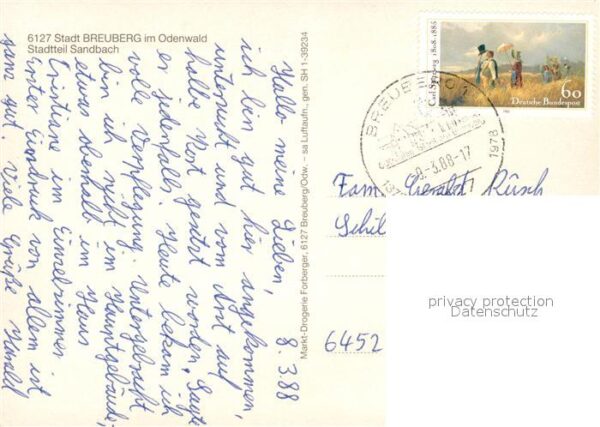 6127 Stadt BREUBERG im Odenwald
Stadtteil Sandbach
8.3.88
Hallo meine Lieben,
ich bin gut hier angekommen,
untersucht und vom Arzt auf
halbe Kost gesetzt worden, sagte
er jedenfalls. Heute bekam ich
volle Verpflegung. Untergebracht
bin ich nicht im Hauptgebäude,
etwas oberhalb im Haus
Christiane im Einzelzimmer
Erster Eindruck von allem ist
ganz gut. Viele Grüße Harald
Markt-Drogerie Forberger, 6127 Breuberg/Odw. – sa Luftaufn., gen. SH 1-39234
Carl Spitzweg 1808-1885
60
Deutsche Bundespost
BREUBERG 1
-3.88-17
1978
Fam. Gerald Rüsch
Schil
6452
privacy protection
Datenschutz